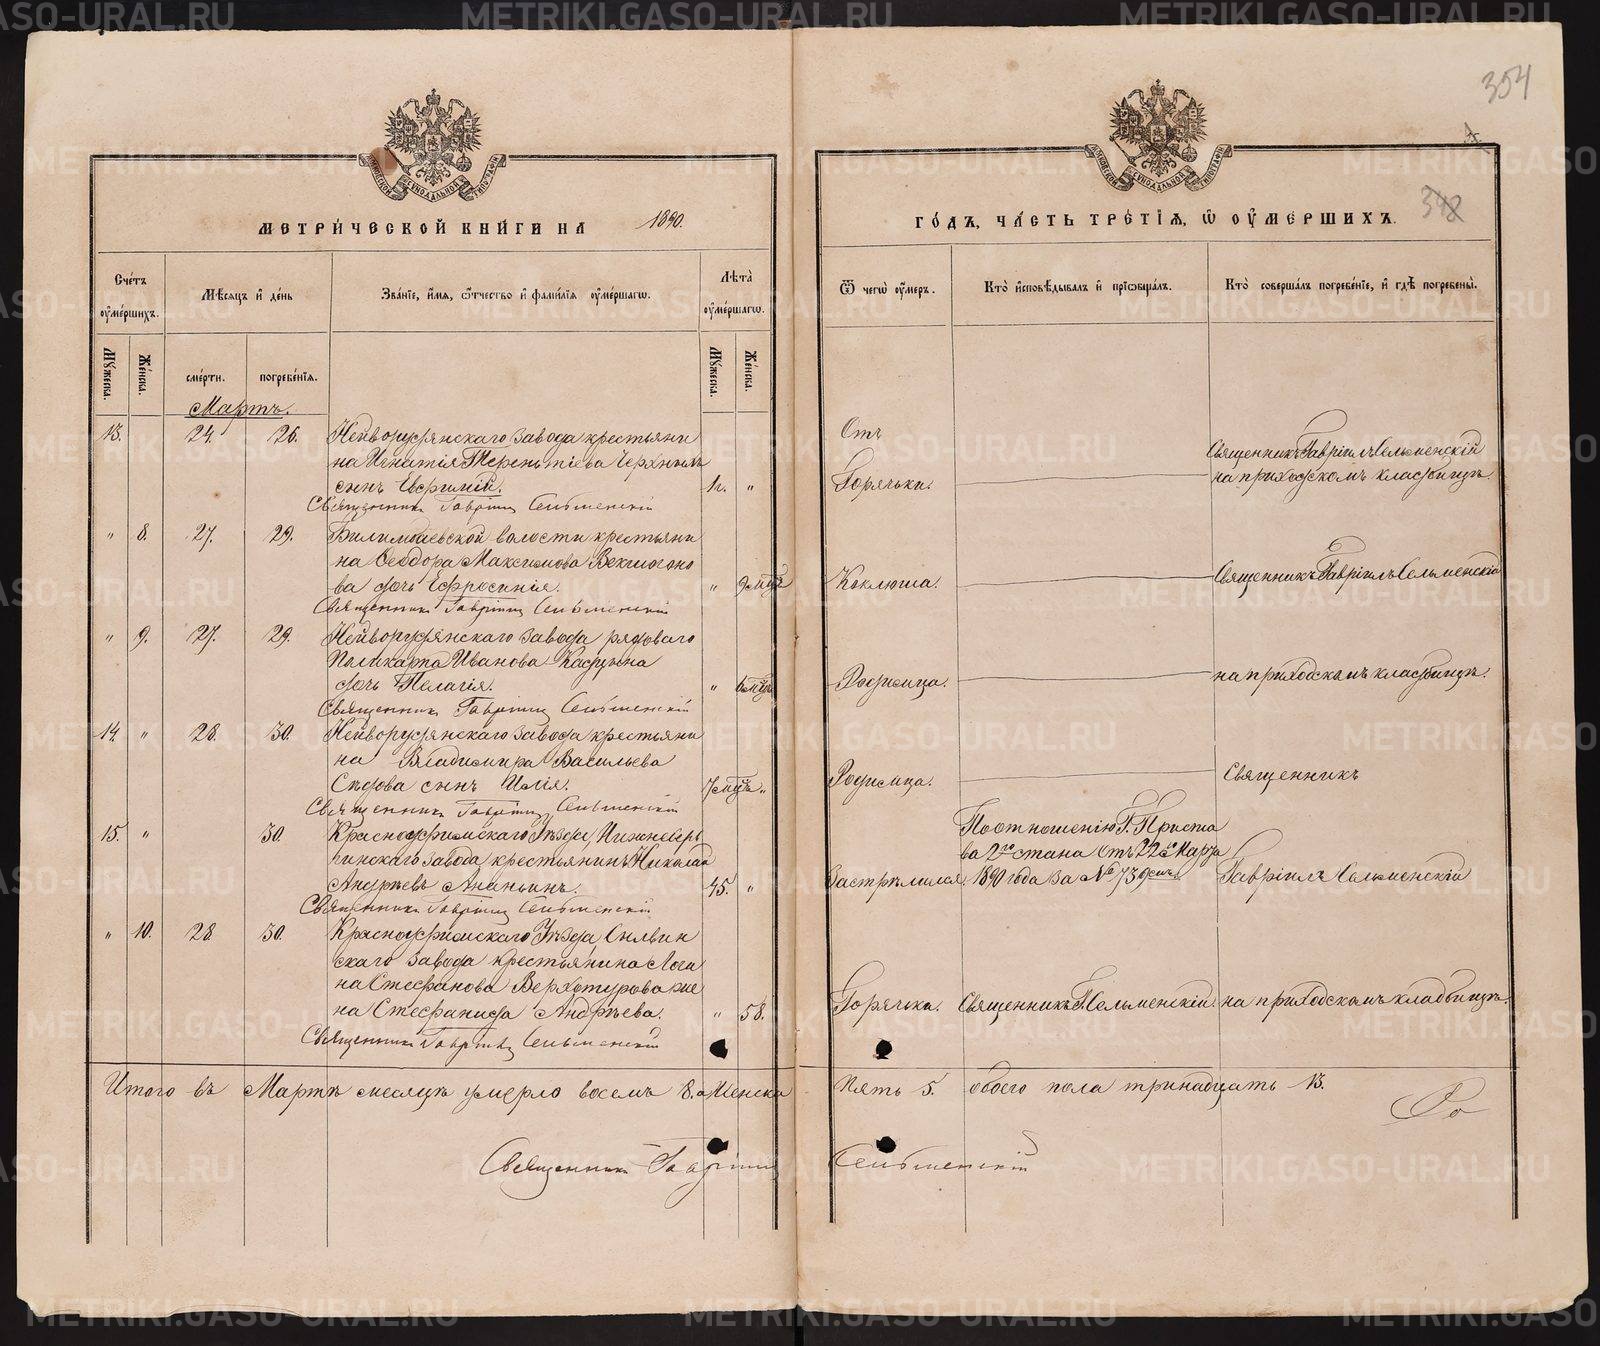 354
348
МОСКОВСКОЙ СУНОДАЛЬНОЙ ТИПОГРАФІИ
МОСКОВСКОЙ СУНОДАЛЬНОЙ ТИПОГРАФІИ
МЕТРИ́ЧЕСКОЙ КНИ́ГИ НА 1890.
ГО́ДЪ, ЧА́СТЬ ТРЕ́ТІѦ, Ѿ ОУМЕ́РШИХЪ.
Сче́тъ оуме́ршихъ.
Мѣ́сяцъ и де́нь
Зва́ніе, и́мя, о́тчество и фами́лія оуме́ршагѡ.
Лѣта̀ оуме́ршагѡ.
Ѿ чегѡ̀ оу́меръ.
Кто̀ исповѣ́дывалъ и пріѡбща́лъ.
Кто̀ соверша́лъ погребе́ніе, и гдѣ̀ погребены̀.
Му́жеска.
Же́нска.
сме́рти.
погребе́нія.
Му́жеска.
Же́нска.
Мартъ.
13. 24. 26. Нейворудянскаго завода крестьяни
на Игнатія Терентіева Черныхъ
сынъ Евфимій. „
Священникъ Гавріилъ Сельменскій
Отъ
Горячки.
Священникъ Гавріилъ Сельменскій
на приходскомъ кладбищѣ.
„ 8. 27. 29. Билимбаевской волости крестьяни
на Ѳеодора Максимова
ва дочь Ефросинія. „ 9 мцъ
Священникъ Гавріилъ Сельменскій
Коклюша.
Священникъ Гавріилъ Сельменскій
„ 9. 27. 29. Нейворудянскаго завода рядоваго
Поликарпа Иванова
дочь Пелагія. „
Священникъ Гавріилъ Сельменскій
Родимца.
на приходскомъ кладбищѣ.
14. „ 28. 30. Нейворудянскаго завода крестьяни
на Владимира Васильева
Сѣдова сынъ Илія. 7 мцъ „
Священникъ Гавріилъ Сельменскій
Родимца.
Священникъ
15. „ 30. Красноуфимскаго Уѣзда, Нижнесер
гинскаго завода, крестьянинъ Николай
Андреевъ Ананьинъ. 45. „
Священникъ Гавріилъ Сельменскій
Застрѣлился
По отношенію Г. Приста
ва 2го стана отъ 22го Марта
1890 года за № 739емъ
Гавріилъ Сельменскій
„ 10. 28. 30. Красноуфимскаго Уѣзда, Сылвин
скаго завода крестьянина Логи
на Стефанова Верхотурова же
на Стефанида Андреева. „ 58.
Священникъ Гавріилъ Сельменскій
Горячка.
Священникъ Г. Сельменскій.
на приходскомъ кладбищѣ.
Итого въ Мартѣ месяцѣ умерло восемь 8. а Женска пять 5. обоего пола тринадцать 13.
Священникъ Гавріилъ Сельменскій
METRIKI.GASO-URAL.RU